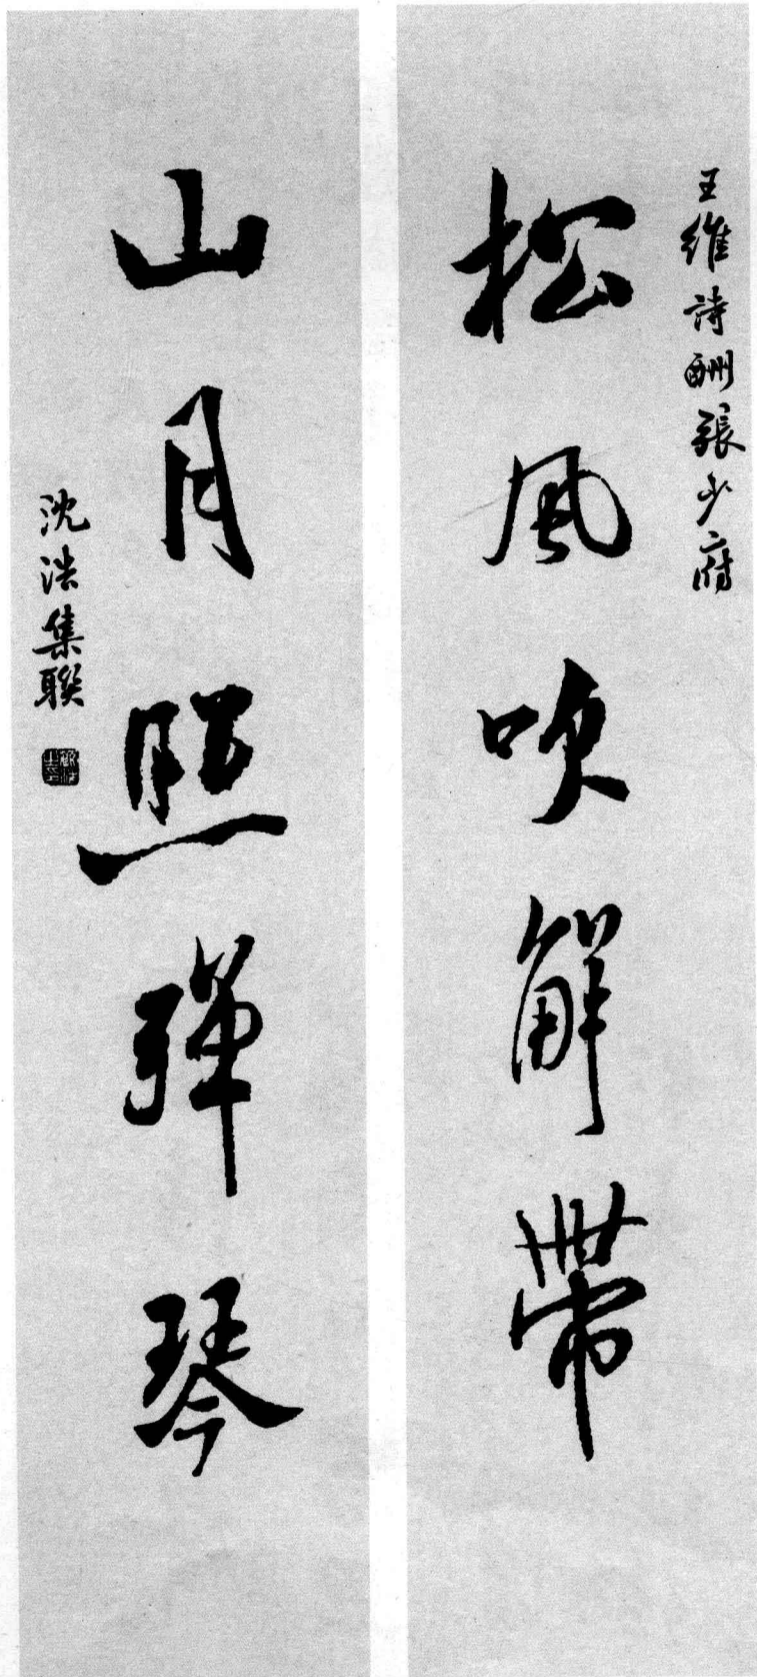 王維詩酬張少府
松風吹解帶
山月照彈琴
沈浩集聯